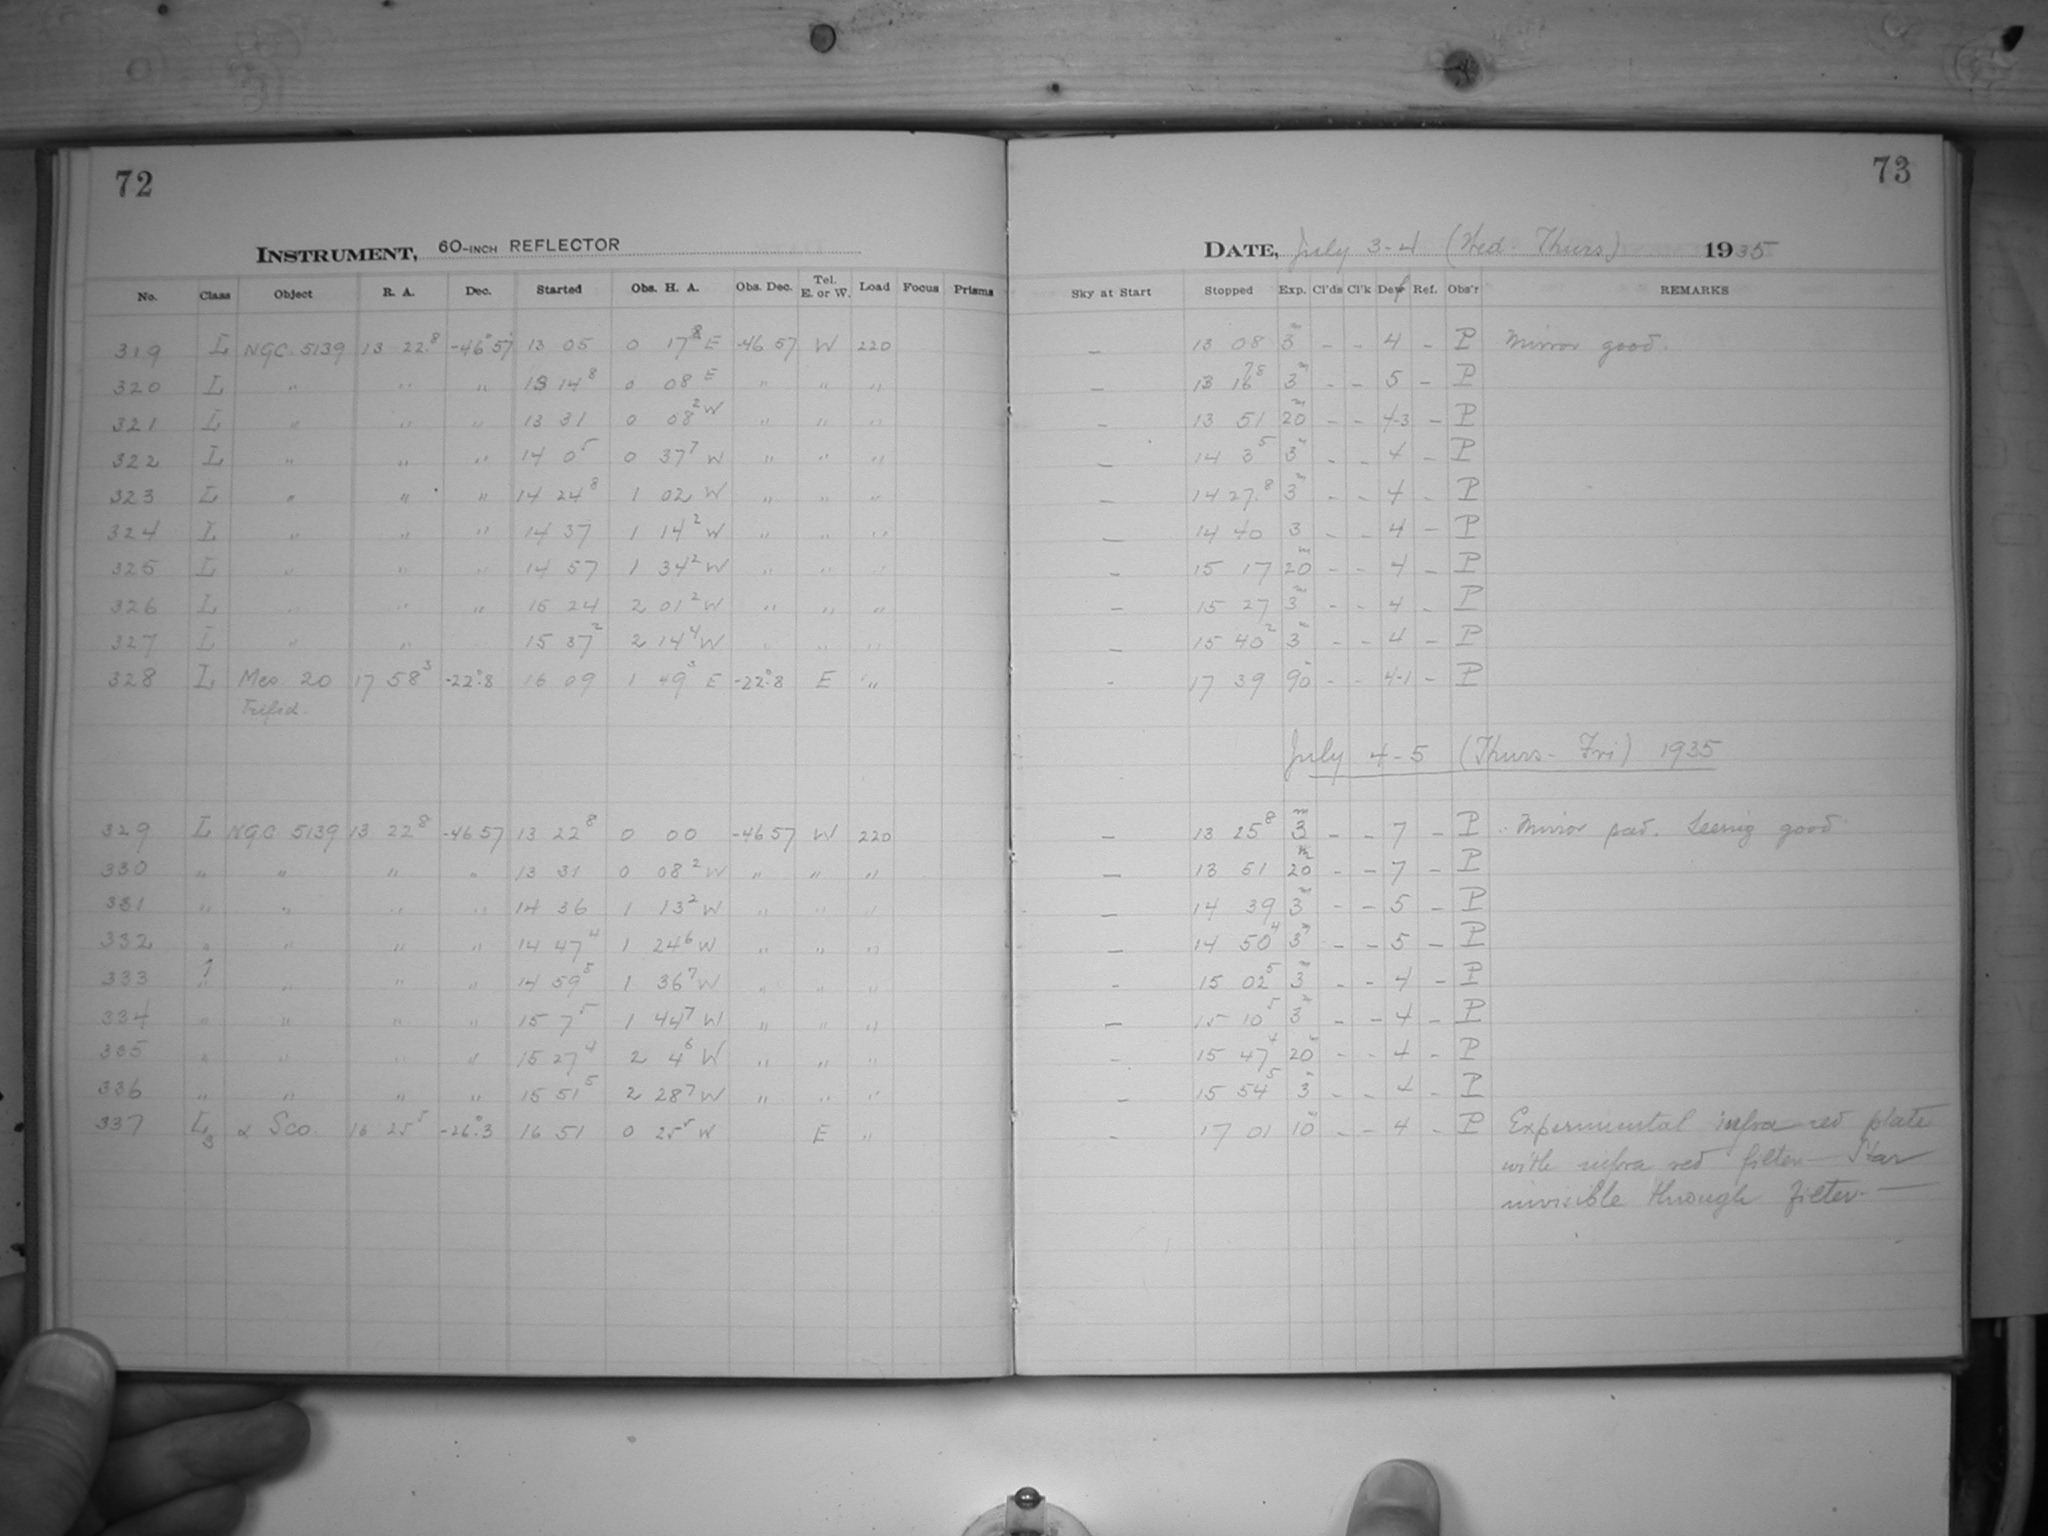 72
73
INSTRUMENT, 60-INCH REFLECTOR
DATE, July 3-4 (Wed-Thurs) 1935
No. Class Object R. A. Dec. Started Obs. H. A. Obs. Dec. Tel. E. or W. Load Focus Prisms Sky at Start Stopped Exp. Cl'ds Cl'k Def Ref. Obs'r REMARKS
319 L NGC 5139 13 22.8 -46° 57' 13 05 0 17 8 E -46 57 W 220 — 13 08 3m - - 4 - P Mirror good.
320 L " " " 13 14 8 0 08 E " " " — 13 16 78 3m - - 5 - P
321 L " " " 13 31 0 08 2 W " " " — 13 51 20m - - 4-3 - P
322 L " " " 14 0 5 0 37 7 W " " " — 14 3 5 3m - - 4 - P
323 L " " " 14 24 8 1 02 W " " " — 14 27.8 3m - - 4 - P
324 L " " " 14 37 1 14 2 W " " " — 14 40 3 - - 4 - P
325 L " " " 14 57 1 34 2 W " " " — 15 17 20m - - 4 - P
326 L " " " 15 24 2 01 2 W " " " — 15 27 3m - - 4 - P
327 L " " 15 37 2 2 14 4 W " " " — 15 40 2 3m - - 4 - P
328 L Mes 20 17 58 3 -22°.8 16 09 1 49 3 E -22°.8 E " - 17 39 90 - - 4-1 - P
Trifid.
July 4-5 (Thurs-Fri) 1935
329 L NGC 5139 13 22 8 -46 57 13 22 8 0 00 -46 57 W 220 — 13 25 8 3m - - 7 - P Mirror Seeing good
330 " " " " 13 31 0 08 2 W " " " — 13 51 20m - - 7 - P
331 " " " " 14 36 1 13 2 W " " " — 14 39 3m - - 5 - P
332 " " " " 14 47 4 1 24 6 W " " " — 14 50 4 3m - - 5 - P
333 " " " " 14 59 5 1 36 7 W " " " - 15 02 5 3m - - 4 - P
334 " " " " 15 7 5 1 44 7 W " " " — 15 10 5 3m - - 4 - P
335 " " " " 15 27 4 2 4 6 W " " " - 15 47 4 20 - - 4 - P
336 " " " " 15 51 5 2 28 7 W " " " - 15 54 5 3 - - 4 - P
337 L3 α Sco. 16 25 5 -26°.3 16 51 0 25 5 W E " - 17 01 10m - - 4 - P Experimental infra red plate
with infra red filter — Star
invisible through filter —